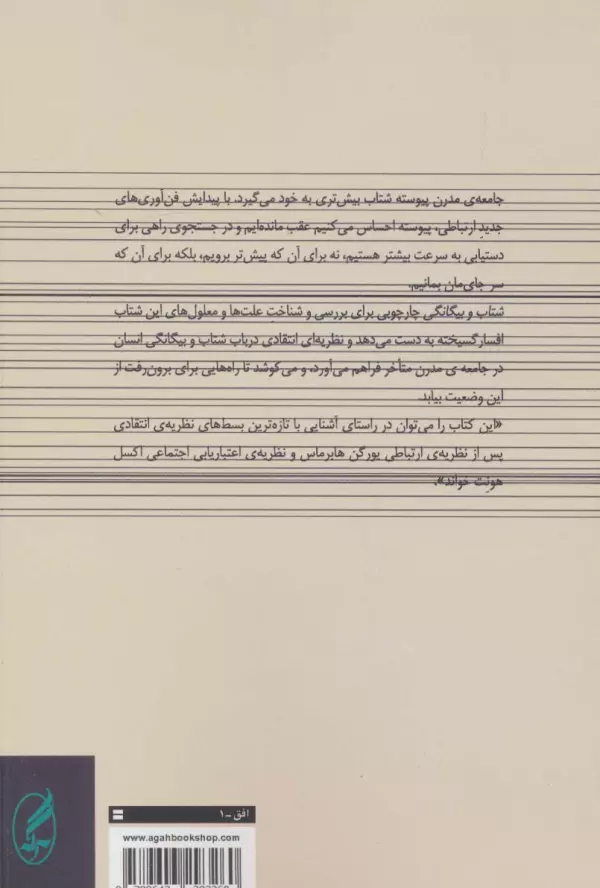 جامعه‌ی مدرن پیوسته شتاب بیش‌تری به خود می‌گیرد. با پیدایش فن‌آوری‌های
جدید ارتباطی، پیوسته احساس می‌کنیم عقب مانده‌ایم و در جستجوی راهی برای
دستیابی به سرعت بیشتر هستیم، نه برای آن که پیش‌تر برویم، بلکه برای آن که
سر جای‌مان بمانیم.
شتاب و بیگانگی چارچوبی برای بررسی و شناختِ علت‌ها و معلول‌های این شتاب
افسارگسیخته به دست می‌دهد و نظریه‌ای انتقادی درباب شتاب و بیگانگی انسان
در جامعه ی مدرن متأخر فراهم می‌آورد، و می‌کوشد تا راه‌هایی برای برون‌رفت از
این وضعیت بیابد.
«این کتاب را می‌توان در راستای آشنایی با تازه‌ترین بسط‌های نظریه‌ی انتقادی
پس از نظریه‌ی ارتباطی یورگن هابرماس و نظریه‌ی اعتباریابی اجتماعی اکسل
هونت خواند».
افق ـ ۱
www.agahbookshop.com
آگه